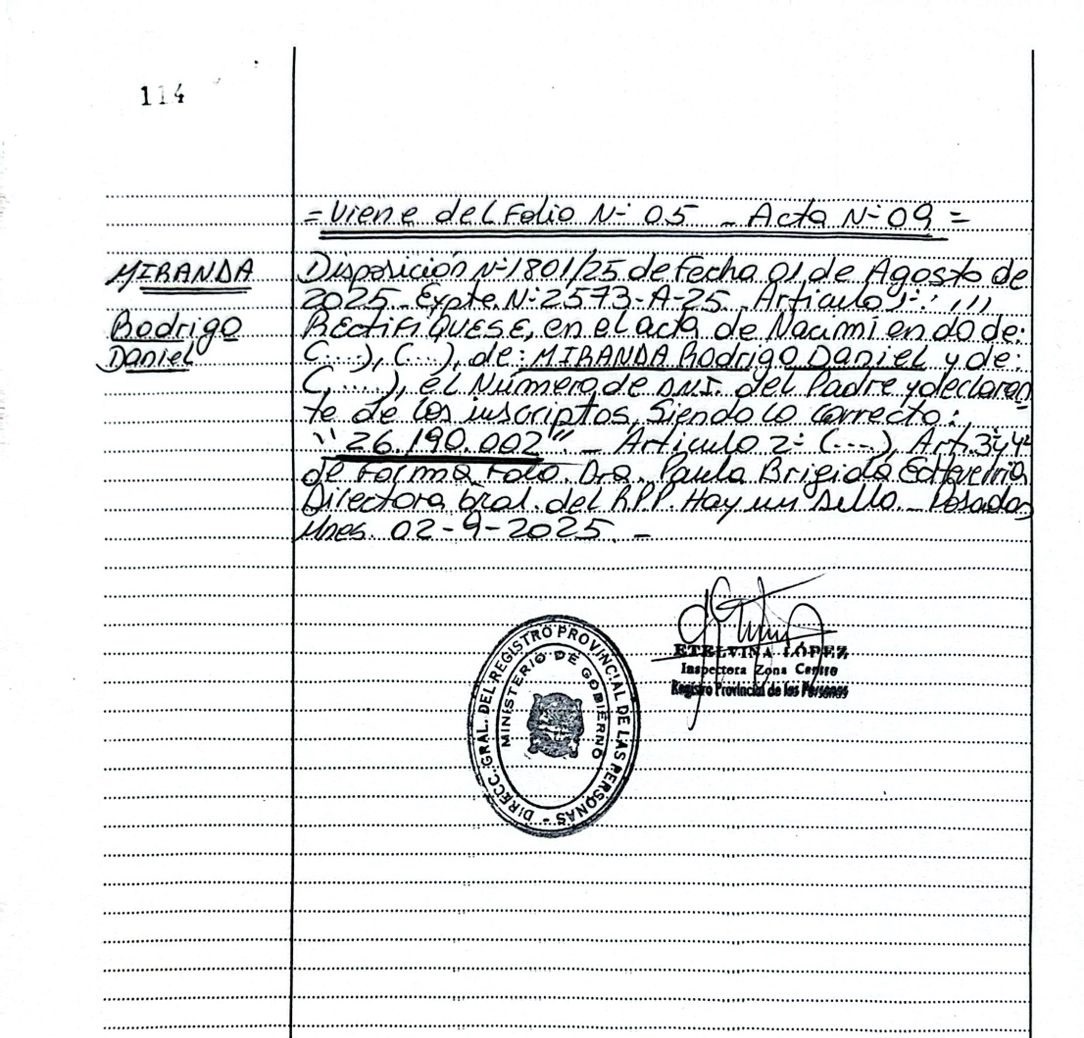 114
= Viene del Folio Nº 05 _ Acta Nº 09 =
MIRANDA
Rodrigo
Daniel
Disposición Nº 1801/25 de Fecha 01 de Agosto de
2025_ Expte. Nº 2573-A-25_ Articulo 1º: ,,,
RECTIFIQUESE, en el acta de Nacimiendo de:
(....), (...), de: MIRANDA Rodrigo Daniel y de:
(.....), el Número de D.N.I. del Padre y declaran
te de los inscriptos, Siendo lo Correcto:
"26.190.002" _ Articulo 2º (----), Art. 3º y 4º
de Forma. Fdo. Dra. Paula Brigida Echeverria
Directora Gral. del RPP. Hay un sello._ Posadas
Mnes. 02-9-2025._
ETELVINA LÓPEZ
Inspectora Zona Centro
Registro Provincial de las Personas
DIRECC. GRAL. DEL REGISTRO PROVINCIAL DE LAS PERSONAS -
MINISTERIO DE GOBIERNO